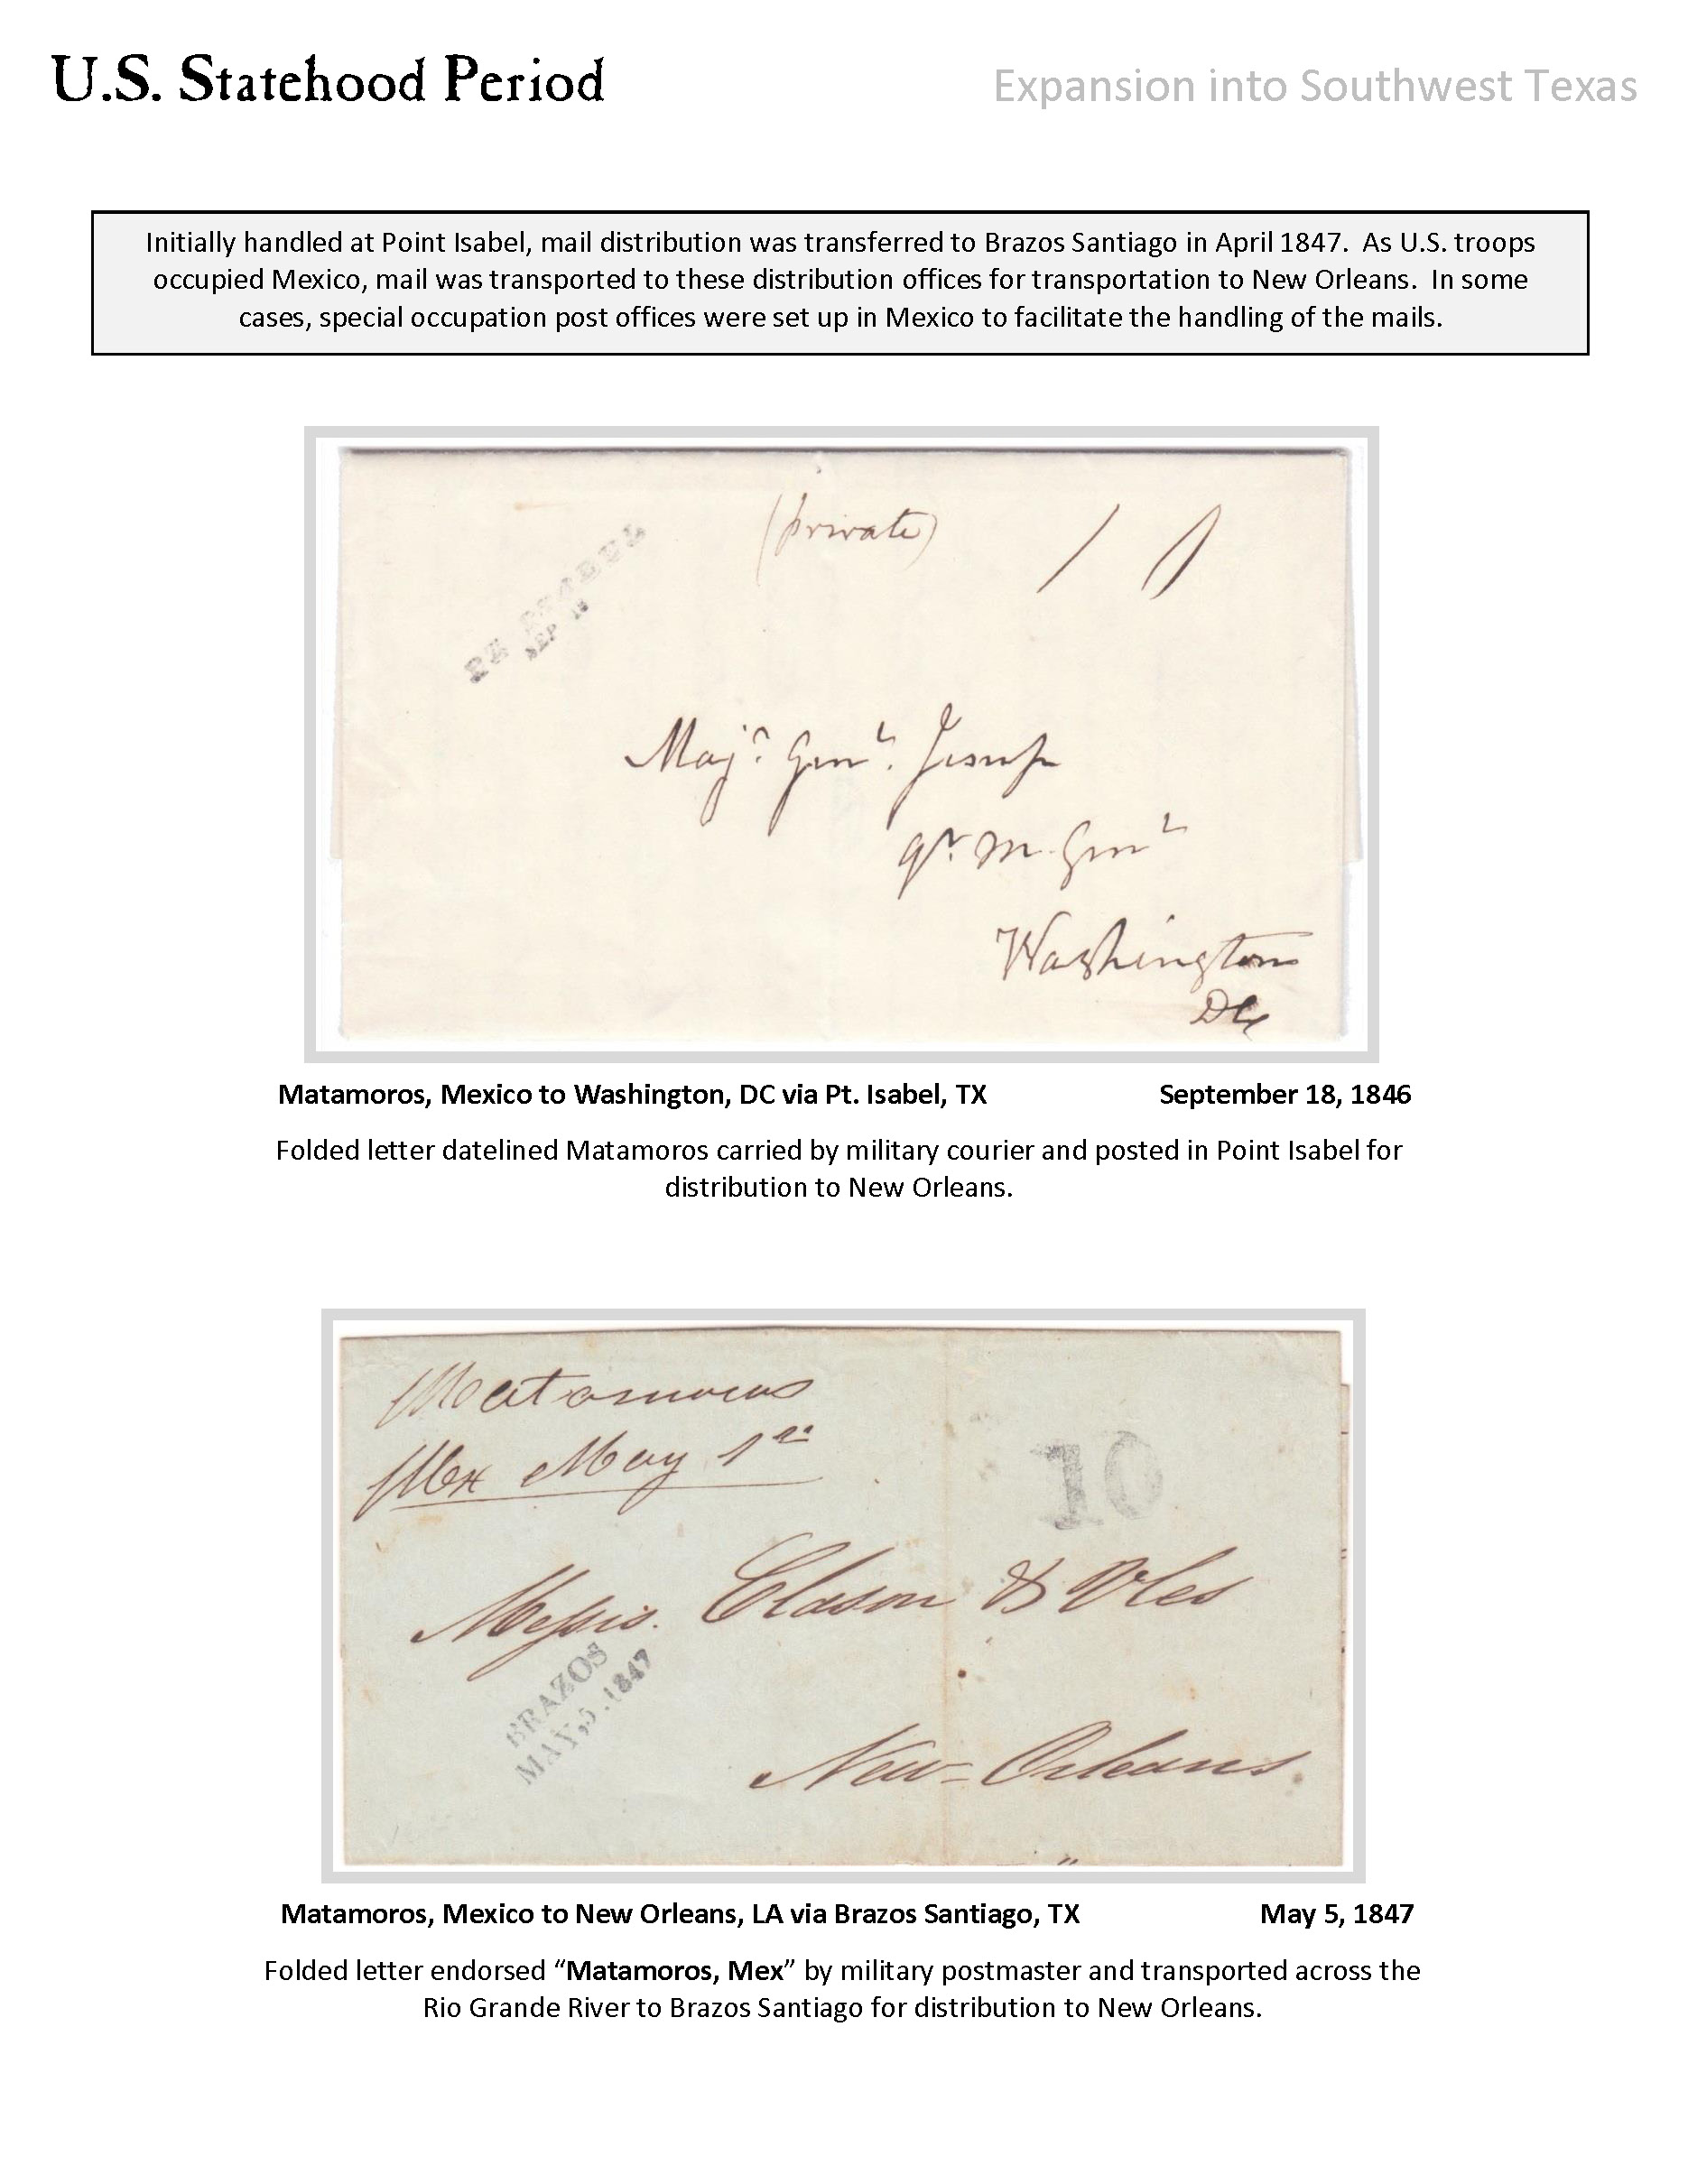 U.S. Statehood Period
Expansion into Southwest Texas
Initially handled at Point Isabel, mail distribution was transferred to Brazos Santiago in April 1847.  As U.S. troops
occupied Mexico, mail was transported to these distribution offices for transportation to New Orleans.  In some
cases, special occupation post offices were set up in Mexico to facilitate the handling of the mails.
(private)
PT ISABEL
SEP 18
Majr. Genl. Jesup
Qr. M. Genl
Washington
DC
Matamoros, Mexico to Washington, DC via Pt. Isabel, TX
September 18, 1846
Folded letter datelined Matamoros carried by military courier and posted in Point Isabel for
distribution to New Orleans.
Matamoros
Mex May 1st
10
Messrs. Clason &
BRAZOS
MAY,5.1847
New-Orleans.
Matamoros, Mexico to New Orleans, LA via Brazos Santiago, TX
May 5, 1847
Folded letter endorsed “Matamoros, Mex” by military postmaster and transported across the
Rio Grande River to Brazos Santiago for distribution to New Orleans.